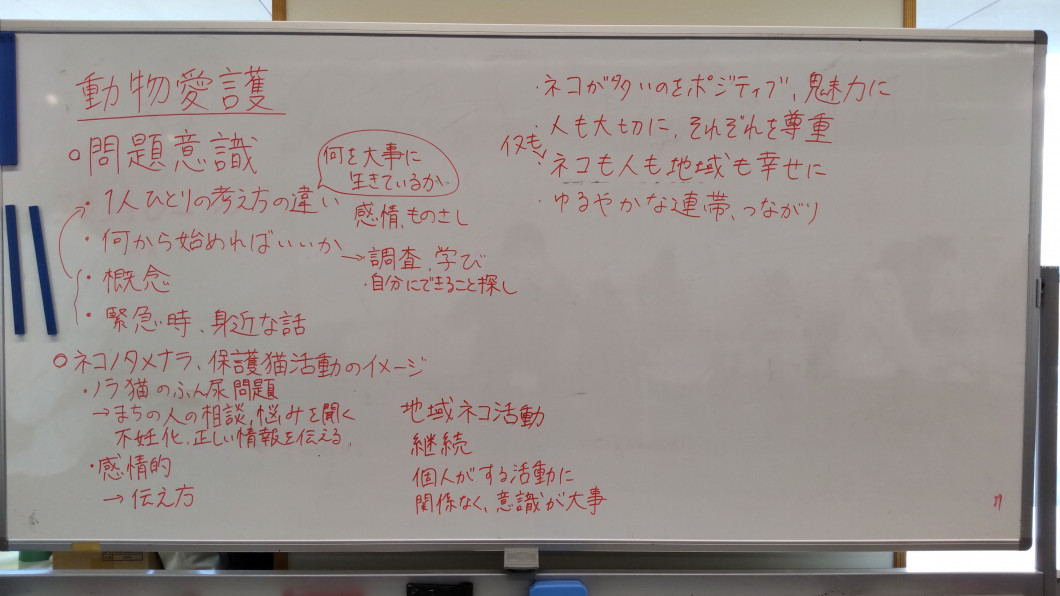 動物愛護
○問題意識
・1人ひとりの考え方の違い
何を大事に
生きているか
感情、ものさし
・何から始めればいいか
→調査、学び
・自分にできること探し
・概念
・緊急時、身近な話
○ネコノタメナラ、保護猫活動のイメージ
・ノラ猫のふん尿問題
→まちの人の相談、悩みを聞く
不妊化、正しい情報を伝える、
・感情的
→伝え方
地域ネコ活動
継続
個人がする活動に
関係なく、意識が大事
・ネコが多いのをポジティブ、魅力に
・人も大切に、それぞれを尊重
・ネコも人も地域も幸せに
・ゆるやかな連帯、つながり